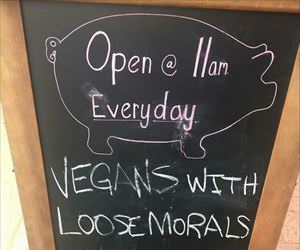 Open @ 11am
Everyday
VEGANS WITH
LOOSE MORALS